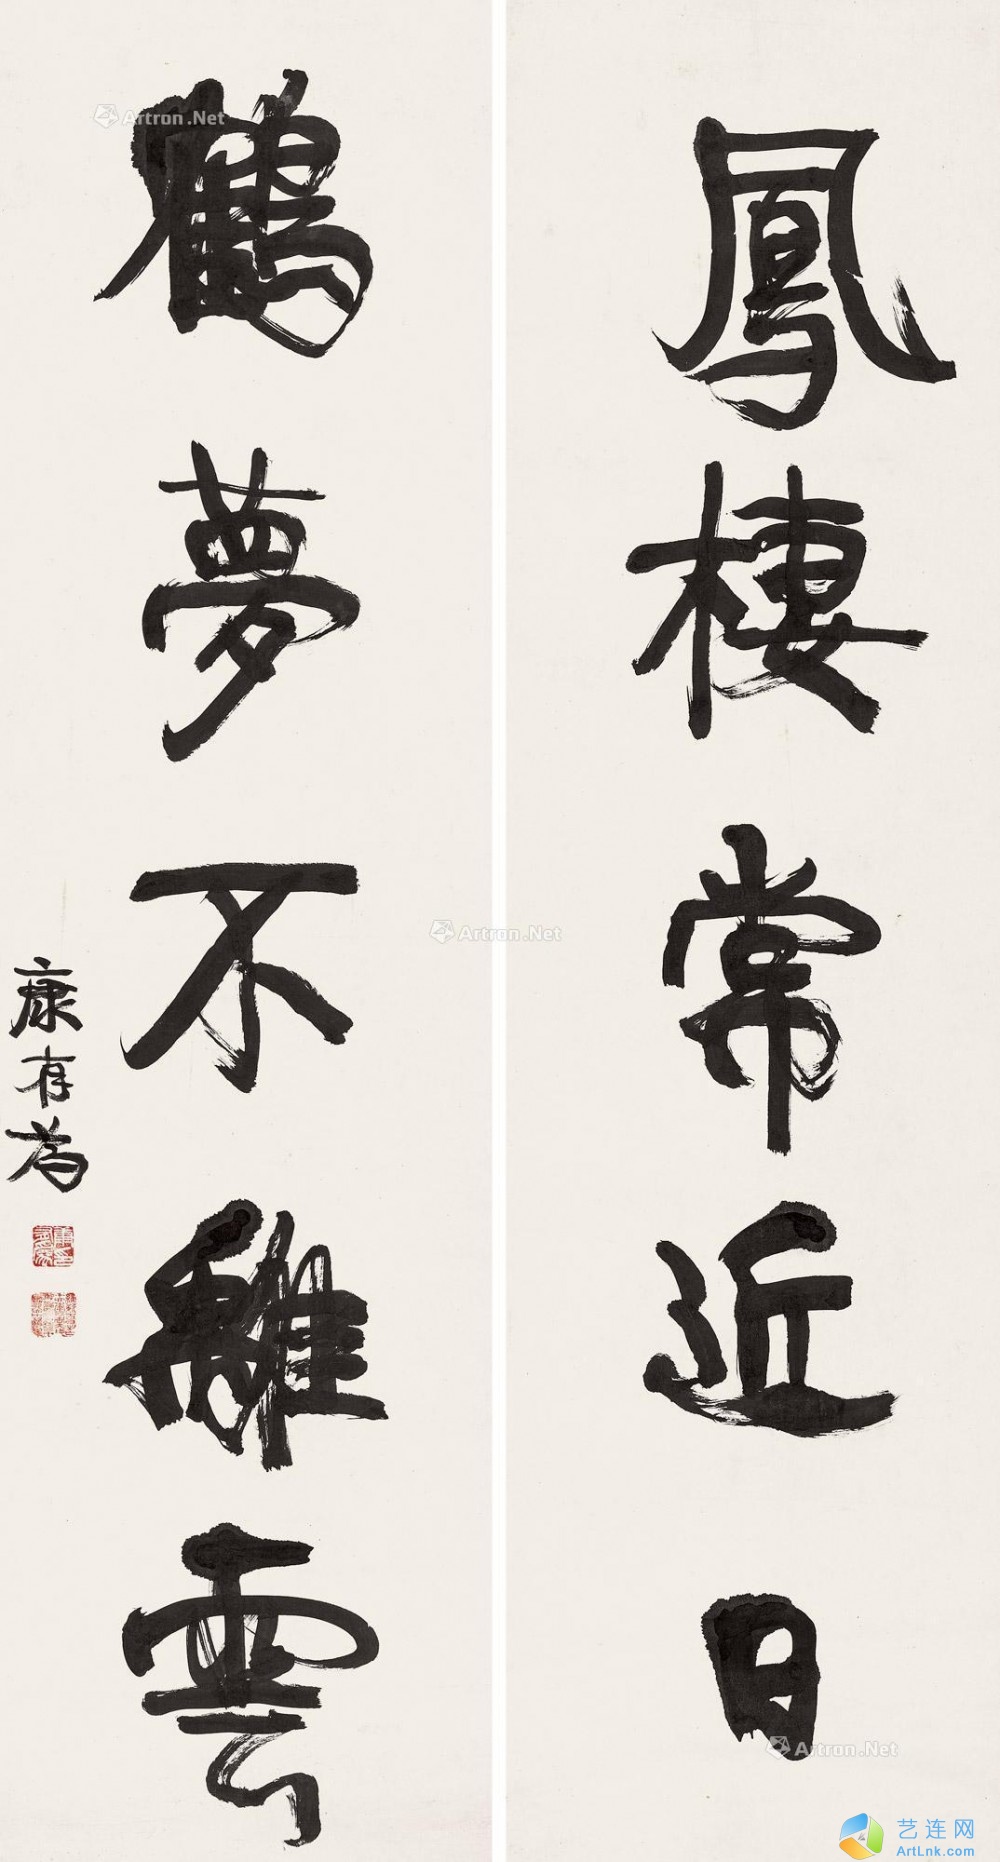 鳳棲常近日
鶴夢不離雲
康有為
Artron.Net
Artron.Net
Artron.Net
艺连网
ArtLnk.com